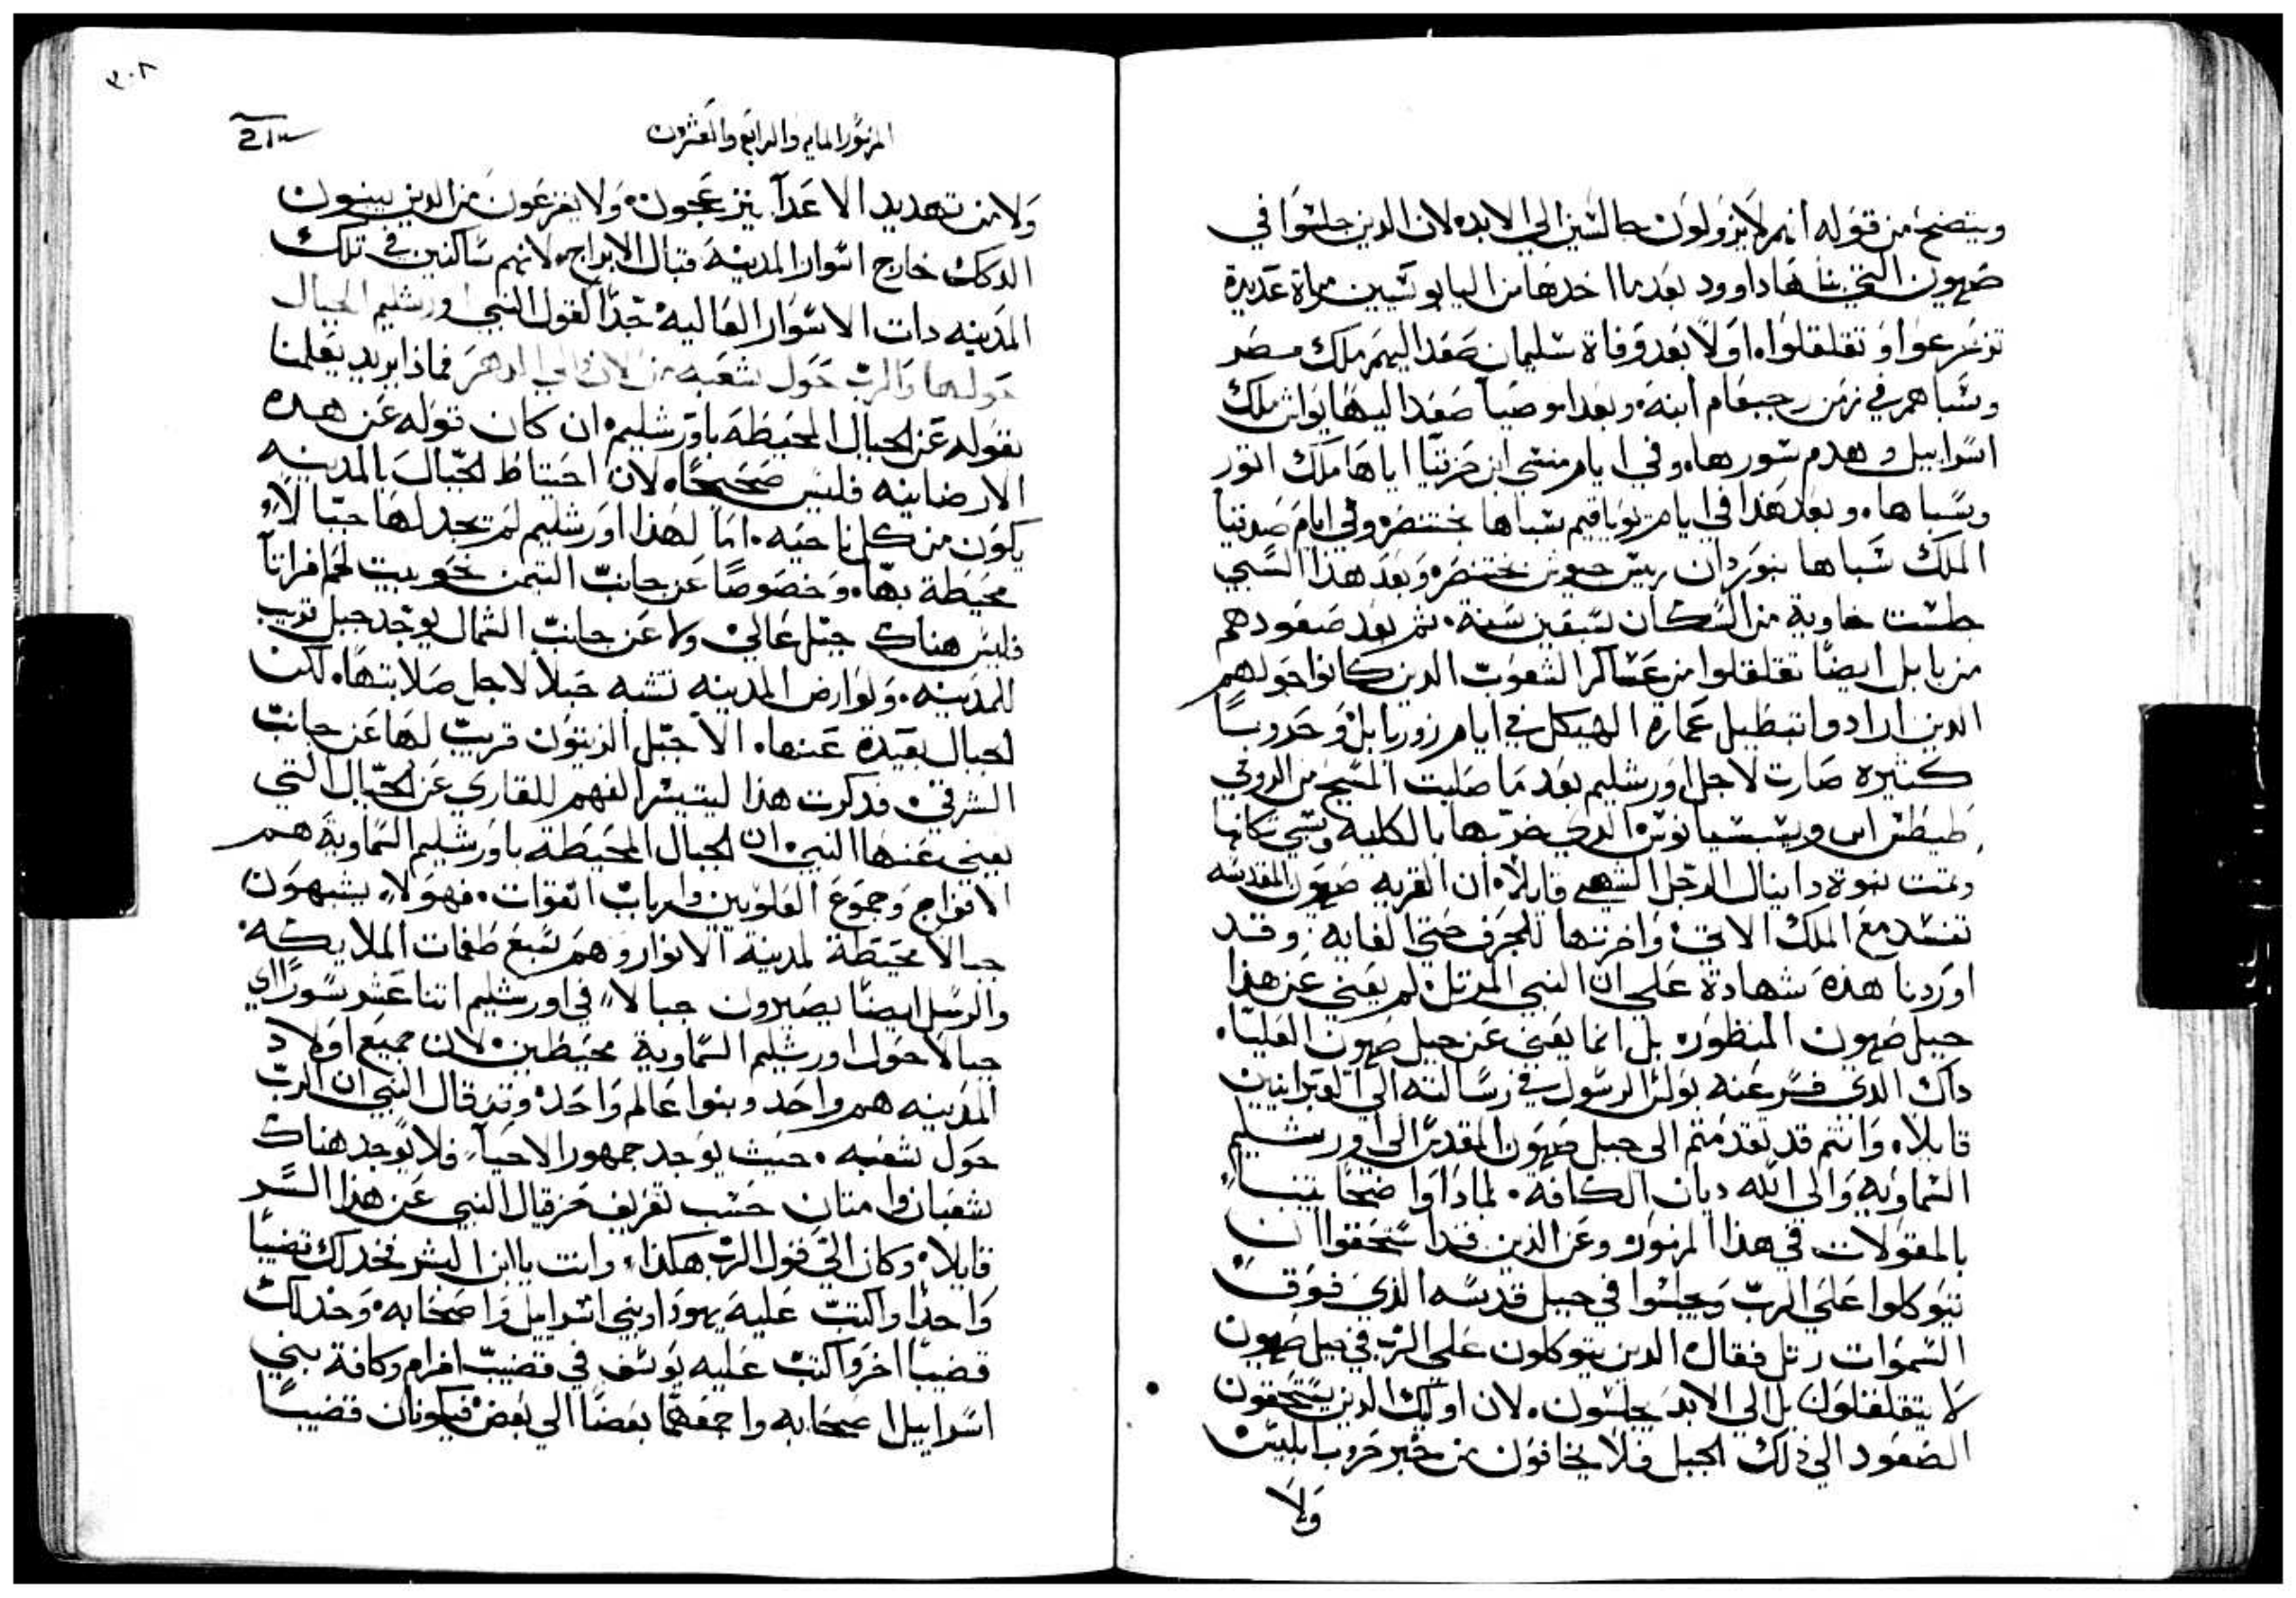 ويتضح من قوله انهم لا يزولون جالسين الي الابد. لان الدين جلسوا في
صهيون التي بناها داوود بعد ما اخدها من اليابوسيين مراة عديدة
تزعزعوا وتقلقلوا. اولا بعد وفاة سليمان صعد اليهم ملك مصر
وسباهم في زمن رحبعام ابنه. وبعد اموصيا صعد اليها يواش ملك
اسراييل وهدم سورها. وفي ايام منسي ابن حزقيا اياها ملك اتور
وسباها. وبعد هذا في ايام يوياقيم سباها بختنصر. وفي ايام صدقيا
الملك سباها نبوزردان ريس جيوش بختنصر. وبعد هذا السبي
جلست خاوية من السكان سبعين سنة. ثم بعد صعودهم
من بابل ايضًا تقلقلوا من عساكر الشعوب الدين كانوا حولهم
الدين ارادوا تبطيل عمارة الهيكل في ايام زوربابل وحروبًا
كثيرة صارت لاجل اورشليم بعد ما صلبت المسيح من الروفي
طيطس ابن وسبسيانوس الدي خربها بالكلية وسبي سكانها
وتمت نبوة دانيال الرجل الشهي قايلاً. ان القريه صهيون المقدسه
تفسد مع الملك الاتي. واخرتها للجرف حتي الغايه. وقد
اوردنا هذه شهادة علي ان النبي المرتل لم يعني عن هذا
جبل صهيون المنظور. بل انما يعني عن جبل صهيون العليا.
داك الدي فسر عنه بولس الرسول في رسالته الي العبرانيين
قايلا. وانتم قد تقدمتم الي جبل صهيون المقدس الي اورشليم
السماويه والي الله ديان الكافة. لماذا واضحًا يتنبا
بالمقولات في هذا المزمور. وعن الذين قد استحقوا ان
يتوكلوا علي الرب ويجلسوا في جبل قدسه الذي فوق
السموات رتل فقال. الدين يتوكلون علي الرب في جبل صهيون
لا يتقلقلون بل الي الابد يجلسون. لان اوليك الدين يستحقون
الصعود الي ذلك الجبل فلا يخافون من خبر حروب ابليس
ولا
٣٠٢
المزمور المايه والرابع والعشرون
ولا من تهديد الاعدآ ينزعجون. ولا يفزعون من الدين يبنون
الدكك خارج اسوار المدينه قبال الابراج. لانهم ساكنين في تلك
المدينه دات الاسوار العاليه جدًا لقول النبي اورشليم الجبال
حولها والرب حول شعبه من الان والي الدهر فماذا يريد يعلمنا
بقوله عن الجبال المحيطة باورشليم. ان كان قوله عن هده
الارضانيه فليس صحيحًا. لان احتياط الجبال بالمدينه
يكون من كل ناحيه. اما لهذا اورشليم لم تجد لها جبالاً
محيطة بها. وخصوصًا عن جانب التيمن نحو بيت لحم افراتا
فليس هناك جبل عالي ولا عن جانب الشمال يوجد جبل قريب
للمدينه. ولو ارض المدينه تشبه جبلاً لاجل صلابتها. لكن
الجبال بعيدة عنها. الا جبل الزيتون قريب لها عن جانب
الشرقي. فدكرت هذا ليتيسر الفهم للقاري عن الجبال التي
يعني عنها النبي. ان الجبال المحيطة باورشليم السماوية هم
الافواج وجموع العلويين وارباب القوات. فهولاء يشبهون
جبالاً محيطة لمدينة الانوار وهم تسع طغمات الملايكه.
والرسل ايضًا يصيرون جبالاً في اورشليم اتنا عشر سورًا اي
جبالاً حول اورشليم السماوية محيطين. لان جميع اولاد
المدينه هم واحد وبنوا عالم واحد. وقد قال النبي ان الرب
حول شعبه. حيث يوجد جمهور الاحيآ. فلا يوجد هناك
شعبان وامتان حسب تعريف حزقيال النبي عن هذا السر
قايلا. وكان الي قول الرب هكذا. وانت يا ابن البشر فخد لك قضيبًا
واحدًا واكتب عليه يهودا وبني اسراييل واصحابه. وخد لك
قضيبًا اخر واكتب عليه يوسف في قضيب افرام وكافة بني
اسراييل اصحابه واجمعهما بعضًا الي بعض فيكونان قضيبًا